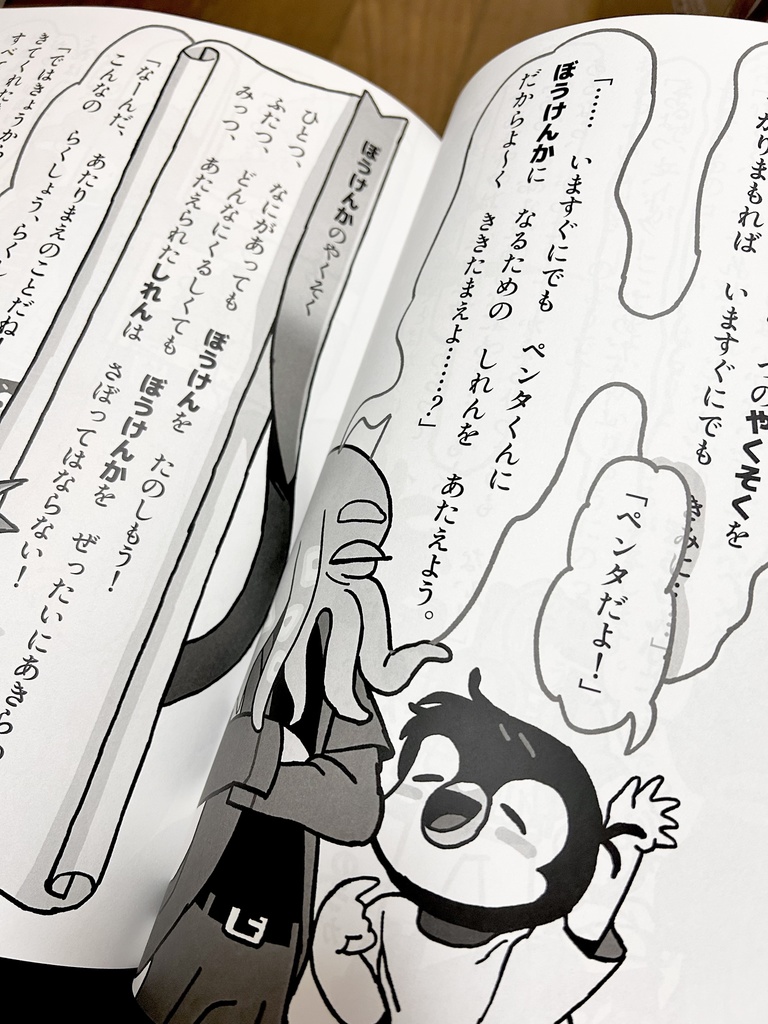 かりまもれば　いますぐにでも
つのやくそくを
「ペンタだよ！」
「……　いますぐにでも　ペンタくんに
ぼうけんかに　なるための　しれんを　あたえよう。
だからよ～く　ききたまえよ……？」
ぼうけんかのやくそく
ひとつ、　なにがあっても　ぼうけんを　たのしもう！
ふたつ、　どんなにくるしくても　ぼうけんかを　ぜったいにあきらめ
みっつ、　あたえられたしれんは　さぼってはならない！
「なーんだ、　あたりまえのことだね！
こんなの　らくしょう、らくし
「ではきょうから
きてくれたま
すべて